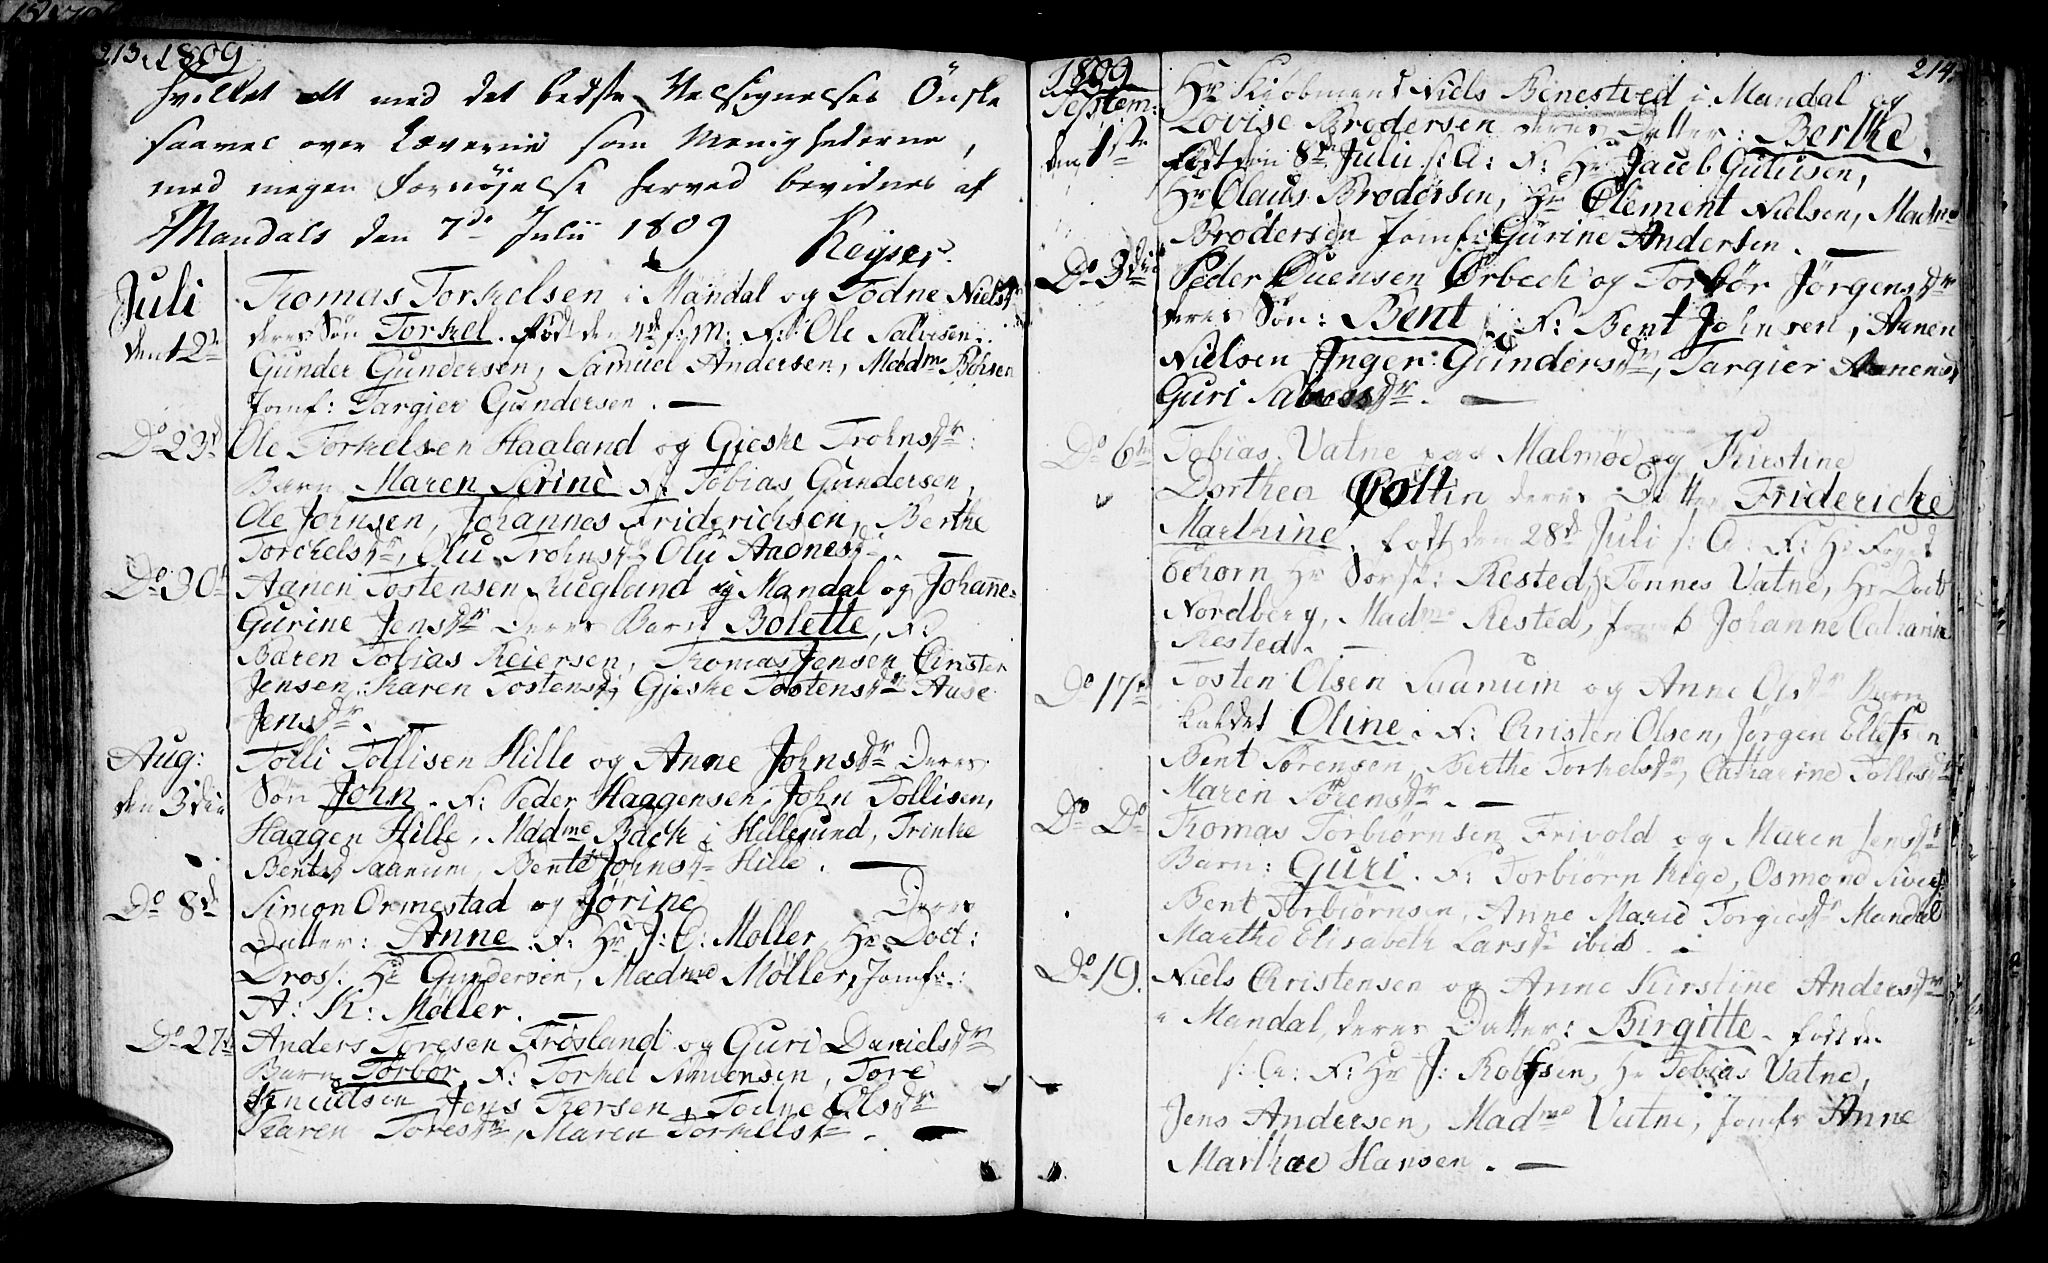 213. 1809
hvilket alt med det bedste Velsignelses Önske
saavel over Lærerne som Menighederne,
med megen Fornöyelse herved bevidnes af
Mandals den 7de Julii 1809 Keyser.
Juli
den 12te
Thomas Torkelsen i Mandal og Todne Nielsdr
deres Sön Torkel. född den 4de s: M: F: Ole Salvesen.
Gunder Gundersen, Samuel Andersen, Madme Böhsen
Jomf: Targier Gundersen. —
Do 23d
Ole Torkelsen Haaland og Gieske Trohnsdr:
Barn Maren Serine F: Tobias Gundersen,
Ole Johnsen, Johannes Friderichsen, Berthe
Torchelsdr, Olu Trohnsdr Olu Aadnesdr. —
Do 30te
Aanen Tostensen Kiegland i Mandal og Johanne
Gurine Jensdr Deres Barn Bolette, F:
Baren Tobias Reiersen, Thomas Jensen Christen
Jensen, Karen Tostensd; Gjeske Tostensdr Aase
Jensdr. —
Aug:
den 3die
Tolli Tollisen Hille og Anne Johnsdr Deres
Sön John. F: Peder Haagensen, John Tollisen,
Haagen Hille, Madme Bäck i Hillesund, Trinke
Bentsd Saanum, Bente Johnsdr Hille. —
Do 8de
Simon Ormestad og Jörine Deres
Datter: Anne. F: Hr J: C: Möller, Hr Doct:
Dros: Hr Gundersen, Madme Möller, Jomfr:
A: K: Möller. —
Do 27de
Anders Toresen Fröisland og Guri Danielsdr
Barn Torbor. F: Torkel Simensen, Tore
Knudsen Jens Thorsen, Todne Olsdr
Karen Toresdr, Maren Torkelsdr. —
1809
Septem:
den 1ste
214.
Hr Kiöbmand Niels Benestved i Mandal og
Lovise Brodersen deres Datter: Berthe,
födt den 8de Julii s: A: F: Hr Jacob Gutusen,
Hr Claus Brodersen, Hr Clement Nielsen, Madme
Brodersen Jomf: Gurine Andersen. —
Do 3die
Peder Quensen Örbech og Torbör Jörgensdr
deres Sön: Bent. F: Bent Johnsen, Aanen
Nielsen Inger Gundersdr, Targier Aanensd
Guri Salvesdr. —
Do 6te
Tobias Vatne paa Malmöe og Kirstine
Dorthea Coltin deres Datter Fridericke
Marthine, födt den 28de Juli s: A: F: Hr Foged
Hr Sorsk: Rested, Tönnes Vatne, Hr Doct
Nordberg, Madme Rested, Jomfr Johanne Catharine
Rested. —
Do 17de
Tosten Olsen Saanum og Anne Olsdr Barn
kaldet Oline. F: Christen Olsen, Jörgen Ellefsen
Bent Sörensen, Berthe Torkelsdr, Catharine Tollisdr
Maren Sörensdr. —
Do Do
Thomas Torbiörnsen Frivold og Maren Jensdr
Barn: Guri. F: Torbiörn Rige, Osmond Sivers
Bent Torbiörnsen, Anne Marie Torgiesdr Mandal
Marthe Elisabeth Larsdr ibid. —
Do 19.
Niels Christensen og Anne Kirstine Andersdr
i Mandal, deres Datter: Birgitte. född den
s: A: F: Hr J: Rolfsen, Hr Tobias Vatne,
Jens Andersen, Madme Vatne, Jomfr Anne
Marthae Hansen. —